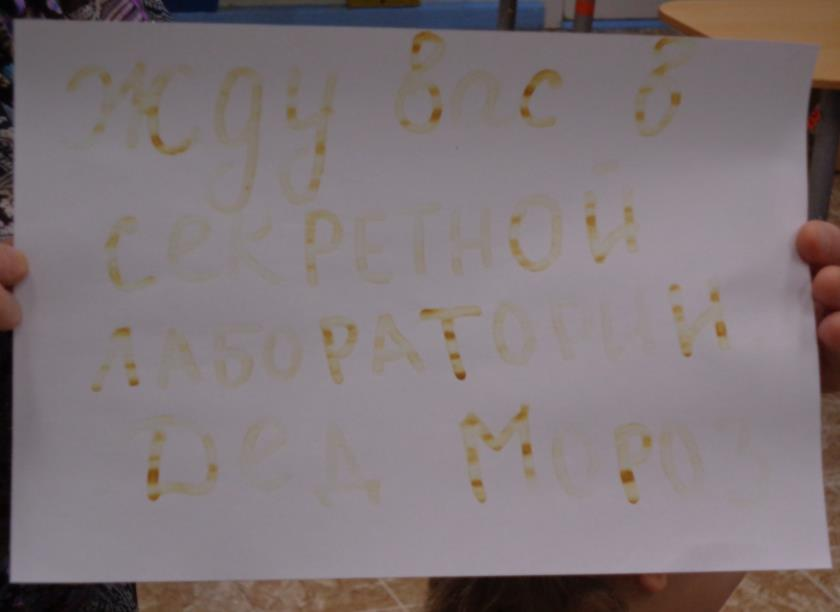 Жду вас в
СЕКРЕТНОЙ
ЛАБОРАТОРИИ
Дед МОРОЗ